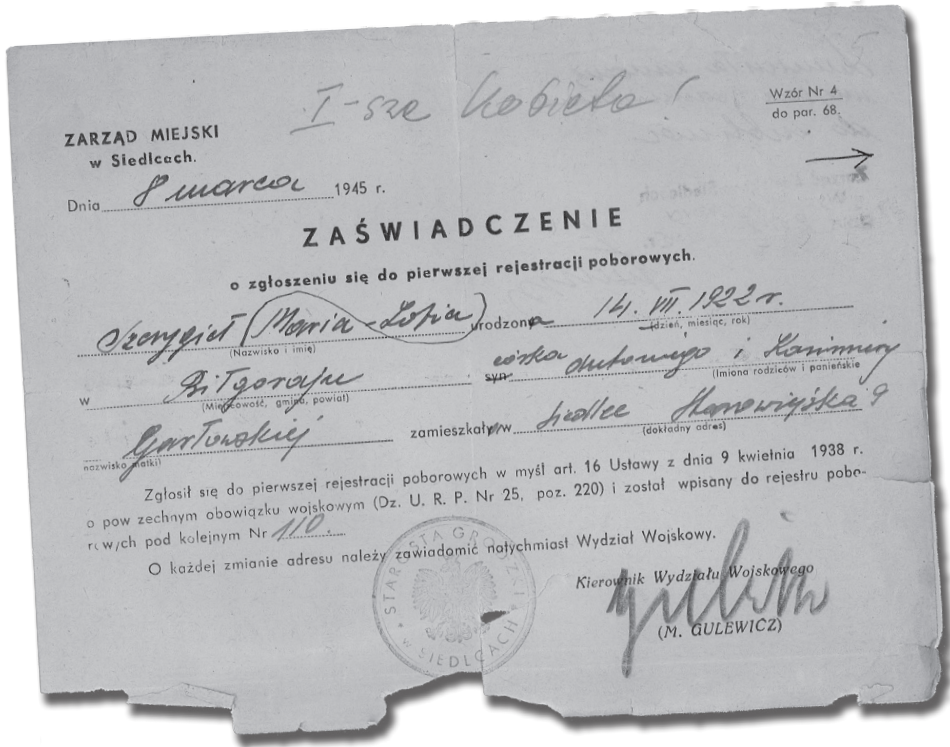 I-sza Kobieta!
Wzór Nr 4
do par. 68.
ZARZĄD MIEJSKI
w Siedlcach.
Dnia 8 marca 1945 r.
ZAŚWIADCZENIE
o zgłoszeniu się do pierwszej rejestracji poborowych.
Szczygieł (Maria-Zofia) urodzona 14. VII. 1922 r.
(Nazwisko i imię) (dzień, miesiąc, rok)
w Biłgoraju syn córka Antoniego i Kazimiery
(Miejscowość, gmina, powiat) (Imiona rodziców i panieńskie
zamieszkały w Siedlce 9
nazwisko matki) (dokładny adres)
Zgłosił się do pierwszej rejestracji poborowych w myśl art. 16 Ustawy z dnia 9 kwietnia 1938 r.
o pow zechnym obowiązku wojskowym (Dz. U. R. P. Nr 25, poz. 220) i został wpisany do rejestru pobo-
rowych pod kolejnym Nr 110.
O każdej zmianie adresu należy zawiadomić natychmiast Wydział Wojskowy.
STAROSTA GRODZKI
w SIEDLCACH
Kierownik Wydziału Wojskowego
(M. GULEWICZ)